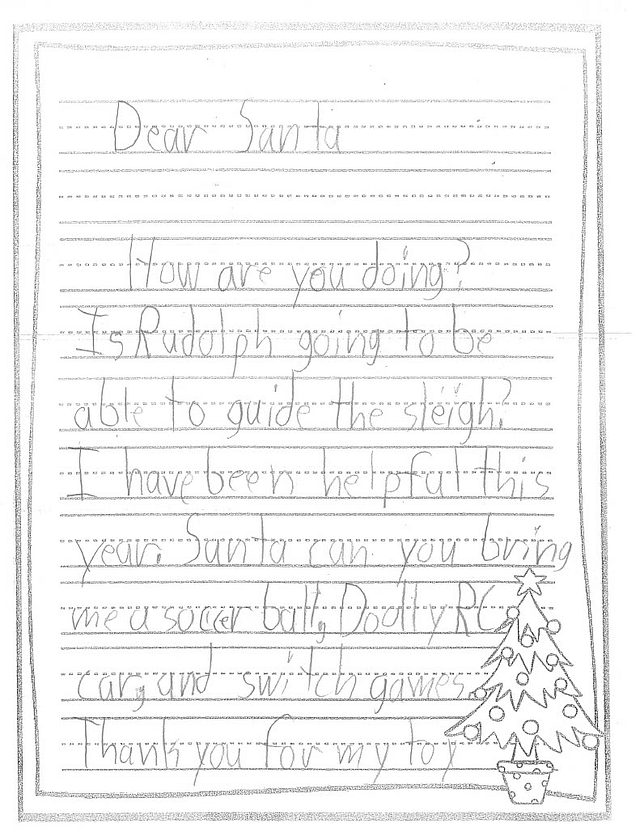 Dear Santa
How are you doing?
Is Rudolph going to be
able to guide the sleigh?
I have been helpful this
year. Santa can you bring
me a soccer ball, Doolly RC
car, and switch games.
Thank you for my toy